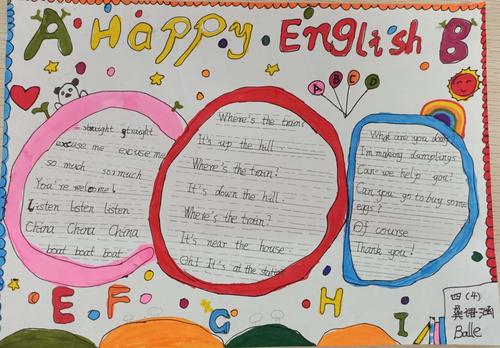 A Happy English B
A B C D
straight straight
excuse me excuse me
so much so much
You're welcome!
Listen listen listen
China China China
boat boat boat
Where's the train?
It's up the hill.
Where's the train?
It's down the hill.
Where's the train?
It's near the house.
Oh! It's at the station
What are you doing
I'm making dumplings
Can we help you?
Can you go to buy some
eggs?
Of course
Thank you!
E F G H I
四(4)
Balle